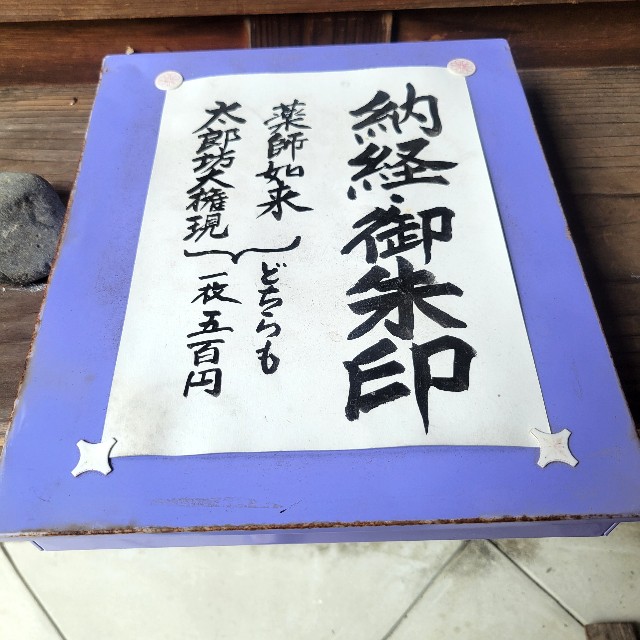 納経・御朱印
薬師如来
太郎坊大権現
どちらも
一枚五百円